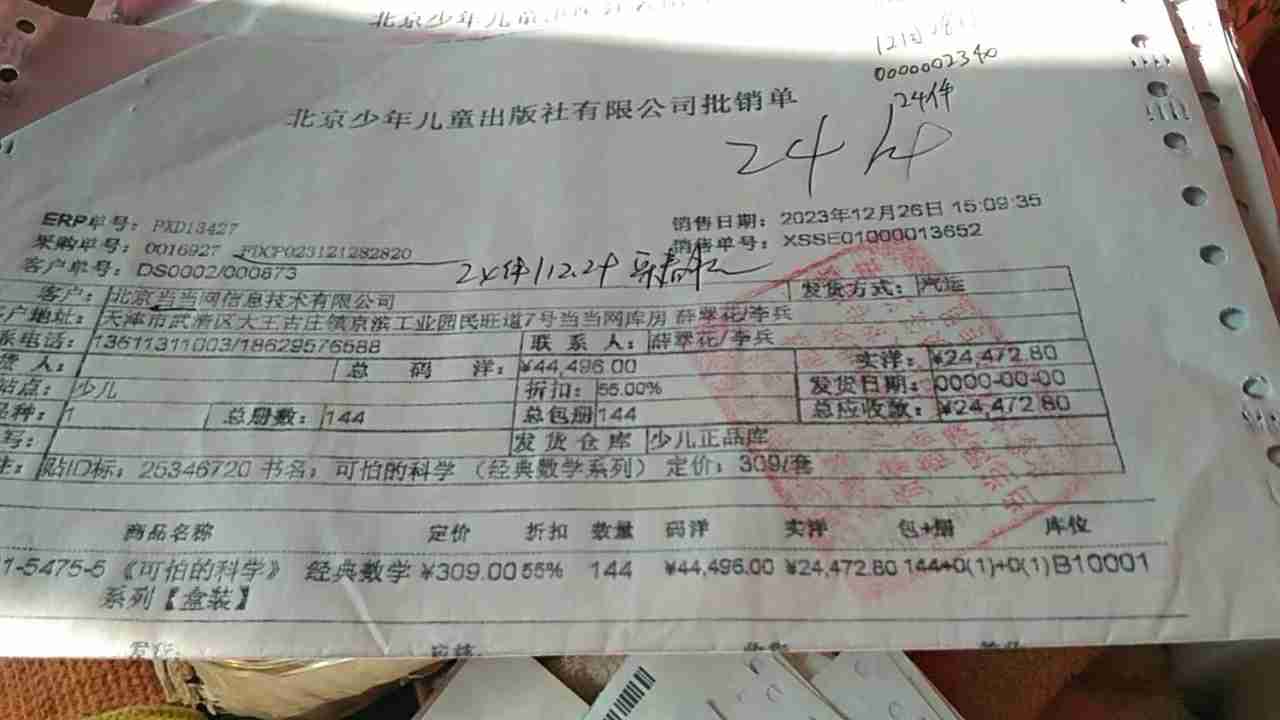 北京少年儿童出版社有限公司批销单
0000002340
24件
24件
ERP单号: PXD13427
采购单号: 0016927 FDCP023121282820
客户单号: DS0002/000873
销售日期: 2023年12月26日 15:09:35
销售单号: XSSE01000013652
24件 112.29
客户: 北京当当网信息技术有限公司 发货方式: 汽运
户地址: 天津市武清区大王古庄镇京滨工业园民旺道7号当当网库房 薛翠花/李兵
系电话: 13611311003/18629576588 联系人: 薛翠花/李兵
货人: 总码洋: ¥44,496.00 实洋: ¥24,472.80
站点: 少儿 折扣: 55.00% 发货日期: 0000-00-00
品种: 1 总册数: 144 总包册 144 总应收款: ¥24,472.80
写: 发货仓库 少儿正品库
注: 贴ID标: 25346720 书名: 可怕的科学 (经典数学系列) 定价: 309/套
商品名称 定价 折扣 数量 码洋 实洋 包+册 库位
1-5475-5 《可怕的科学》 经典数学 ¥309.00 55% 144 ¥44,496.00 ¥24,472.80 144+0(1)+0(1) B10001
系列【盒装】